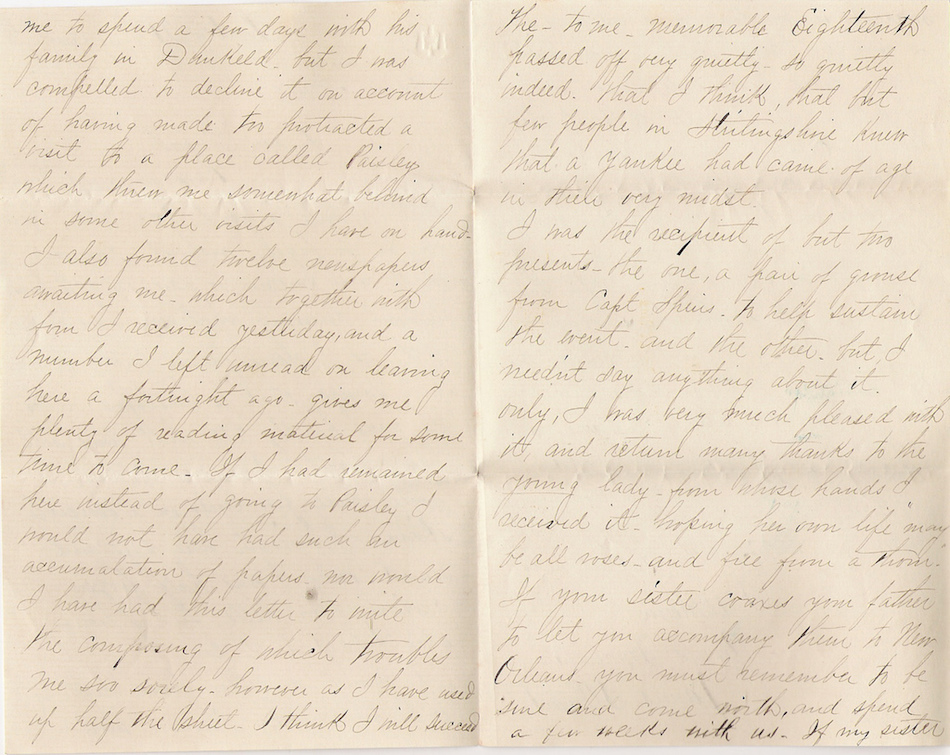 me to spend a few days with his
family in Dunkeld - but I was
compelled to decline it on account
of having made too protracted a
visit to a place called Paisley
which threw me somewhat behind
in some other visits I have on hand -
I also found twelve newspapers
awaiting me - which together with
four I received yesterday, and a
number I left unread on leaving
here a fortnight ago - gives me
plenty of reading material for some
time to come - If I had remained
here instead of going to Paisley I
would not have had such an
accumalation of papers - nor would
I have had this letter to write
the composing of which troubles
me soo sorely - however as I have used
up half the sheet - I think I will succeed
The - to me - memorable Eighteenth
passed off very quietly - so quietly
indeed. that I think, that but
few people in Stirlingshire knew
that a Yankee had came of age
in their very midst.
I was the recipient of but two
presents - the one, a pair of grouse
from Capt Speirs. to help sustain
the event - and the other - but, I
needn't say anything about it
only, I was very much pleased with
it, and return many thanks to the
young lady - from whose hands I
received it - hoping her own life may
be all roses - and free from a thorn -
If your sister coaxes your father
to let you accompany them to New
Orleans - you must remember to be
sure and come north, and spend
a few weeks with us - If my sister